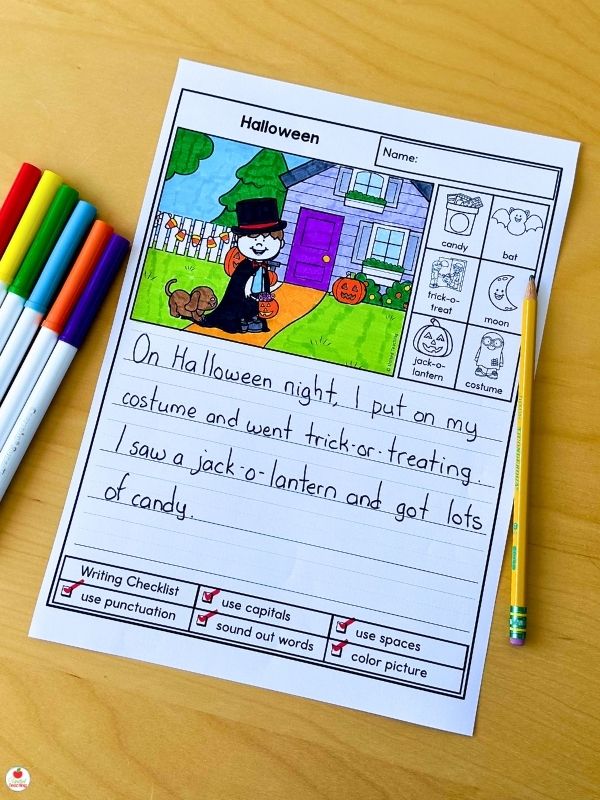 Halloween
Name:
candy
bat
trick-o-
treat
moon
jack-o-
lantern
costume
On Halloween night, I put on my
costume and went trick-or-treating.
I saw a jack-o-lantern and got lots
of candy.
Writing Checklist
use capitals
use spaces
use punctuation
sound out words
color picture